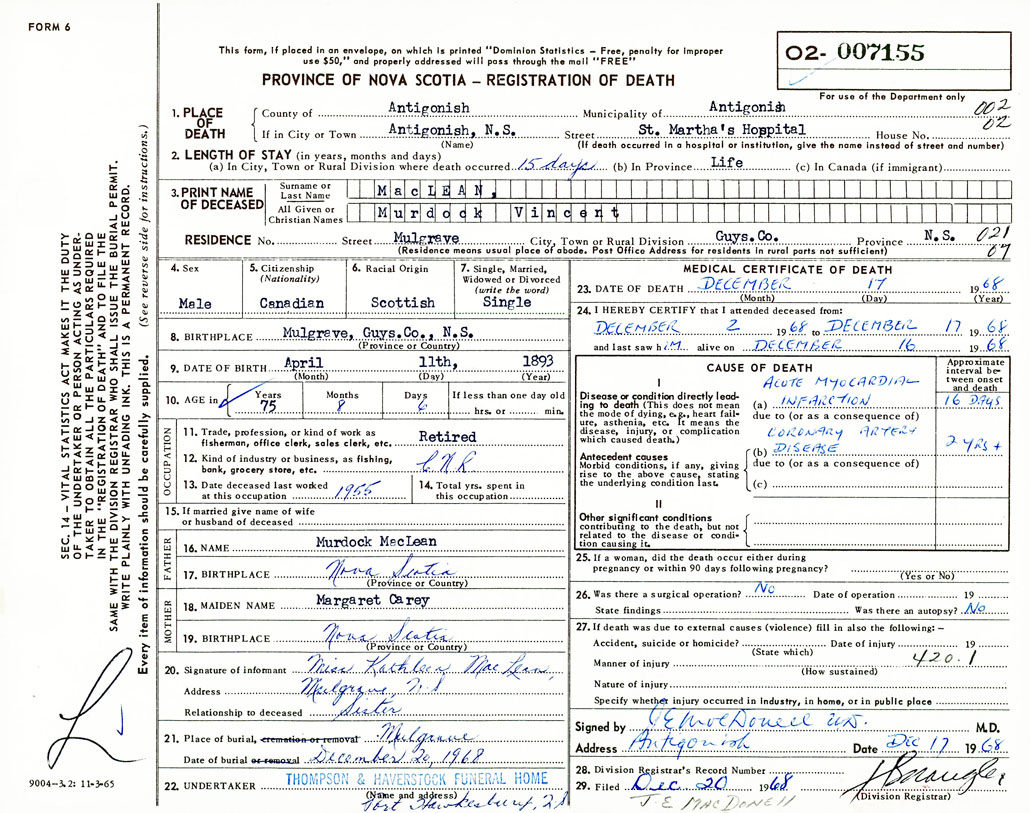 FORM 6
This form, if placed in an envelope, on which is printed "Dominion Statistics – Free, penalty for improper
use $50," and properly addressed will pass through the mail "FREE"
PROVINCE OF NOVA SCOTIA – REGISTRATION OF DEATH
02- 007155
For use of the Department only
1. PLACE OF DEATH
County of Antigonish Municipality of Antigonish 002
If in City or Town Antigonish, N.S. Street St. Martha's Hospital House No. 02
(Name) (If death occurred in a hospital or institution, give the name instead of street and number)
2. LENGTH OF STAY (in years, months and days)
(a) In City, Town or Rural Division where death occurred 15 days (b) In Province Life (c) In Canada (if immigrant)
3. PRINT NAME OF DECEASED
Surname or Last Name MacLEAN,
All Given or Christian Names Murdock Vincent
RESIDENCE No. Street Mulgrave City, Town or Rural Division Guys.Co. Province N.S. 021
(Residence means usual place of abode. Post Office Address for residents in rural parts not sufficient) 07
4. Sex
Male
5. Citizenship
(Nationality)
Canadian
6. Racial Origin
Scottish
7. Single, Married,
Widowed or Divorced
(write the word)
Single
8. BIRTHPLACE Mulgrave, Guys.Co., N.S.
(Province or Country)
9. DATE OF BIRTH April 11th, 1893
(Month) (Day) (Year)
10. AGE in Years Months Days If less than one day old
75 8 6 hrs. or min.
OCCUPATION
11. Trade, profession, or kind of work as
fisherman, office clerk, sales clerk, etc. Retired
12. Kind of industry or business, as fishing,
bank, grocery store, etc. C.N.R
13. Date deceased last worked
at this occupation 1955
14. Total yrs. spent in
this occupation
15. If married give name of wife
or husband of deceased
FATHER
16. NAME Murdock MacLean
17. BIRTHPLACE Nova Scotia
(Province or Country)
MOTHER
18. MAIDEN NAME Margaret Carey
19. BIRTHPLACE Nova Scotia
(Province or Country)
20. Signature of informant Miss Kathleen MacLean,
Address Mulgrave, N.S
Relationship to deceased Sister
21. Place of burial, cremation or removal Mulgrave
Date of burial or removal December 20, 1968
22. UNDERTAKER THOMPSON & HAVERSTOCK FUNERAL HOME
(Name and address)
Port Hawkesbury, N.S
MEDICAL CERTIFICATE OF DEATH
23. DATE OF DEATH DECEMBER 17 1968
(Month) (Day) (Year)
24. I HEREBY CERTIFY that I attended deceased from:
DECEMBER 2 1968 to DECEMBER 17 1968
and last saw him alive on DECEMBER 16 1968.
CAUSE OF DEATH
Approximate
interval be-
tween onset
and death
I
Disease or condition directly lead-
ing to death (This does not
mean the mode of dying, e.g., heart fail-
ure, asthenia, etc. It means the
disease, injury, or complication
which caused death.)
ACUTE MYOCARDIAL
(a) INFARCTION 16 DAYS
due to (or as a consequence of)
CORONARY ARTERY
(b) DISEASE 2 YRS+
due to (or as a consequence of)
(c)
Antecedent causes
Morbid conditions, if any, giving
rise to the above cause, stating
the underlying condition last.
II
Other significant conditions
contributing to the death, but not
related to the disease or condi-
tion causing it.
25. If a woman, did the death occur either during
pregnancy or within 90 days following pregnancy?
(Yes or No)
26. Was there a surgical operation? No Date of operation 19
State findings Was there an autopsy? No
27. If death was due to external causes (violence) fill in also the following: –
Accident, suicide or homicide? Date of injury 19
(State which) 420.1
Manner of injury
(How sustained)
Nature of injury
Specify whether injury occurred in industry, in home, or in public place
Signed by J E MacDonell M.D. M.D.
Address Antigonish Date Dec 17 1968
28. Division Registrar's Record Number
29. Filed Dec 20 1968
(Division Registrar)
J. E MACDONELL
SEC. 14 – VITAL STATISTICS ACT MAKES IT THE DUTY
OF THE UNDERTAKER OR PERSON ACTING AS UNDER-
TAKER TO OBTAIN ALL THE PARTICULARS REQUIRED
IN THE "REGISTRATION OF DEATH" AND TO FILE THE
SAME WITH THE DIVISION REGISTRAR WHO SHALL ISSUE THE BURIAL PERMIT.
WRITE PLAINLY WITH UNFADING INK. THIS IS A PERMANENT RECORD.
Every item of information should be carefully supplied. (See reverse side for instructions.)
9004–3.2: 11-3-65